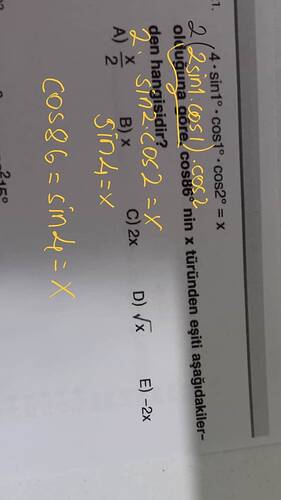 1.
4 · sin1° · cos1° · cos2° = x
2(2sin1.cos1).cos2
olduğuna göre, cos86° nin x türünden eşiti aşağıdakiler-
den hangisidir?
2. sin2.cos2 = x
A) x/2 B) x C) 2x D) √x E) -2x
sin4 = x
cos86 = sin4 = x
215°